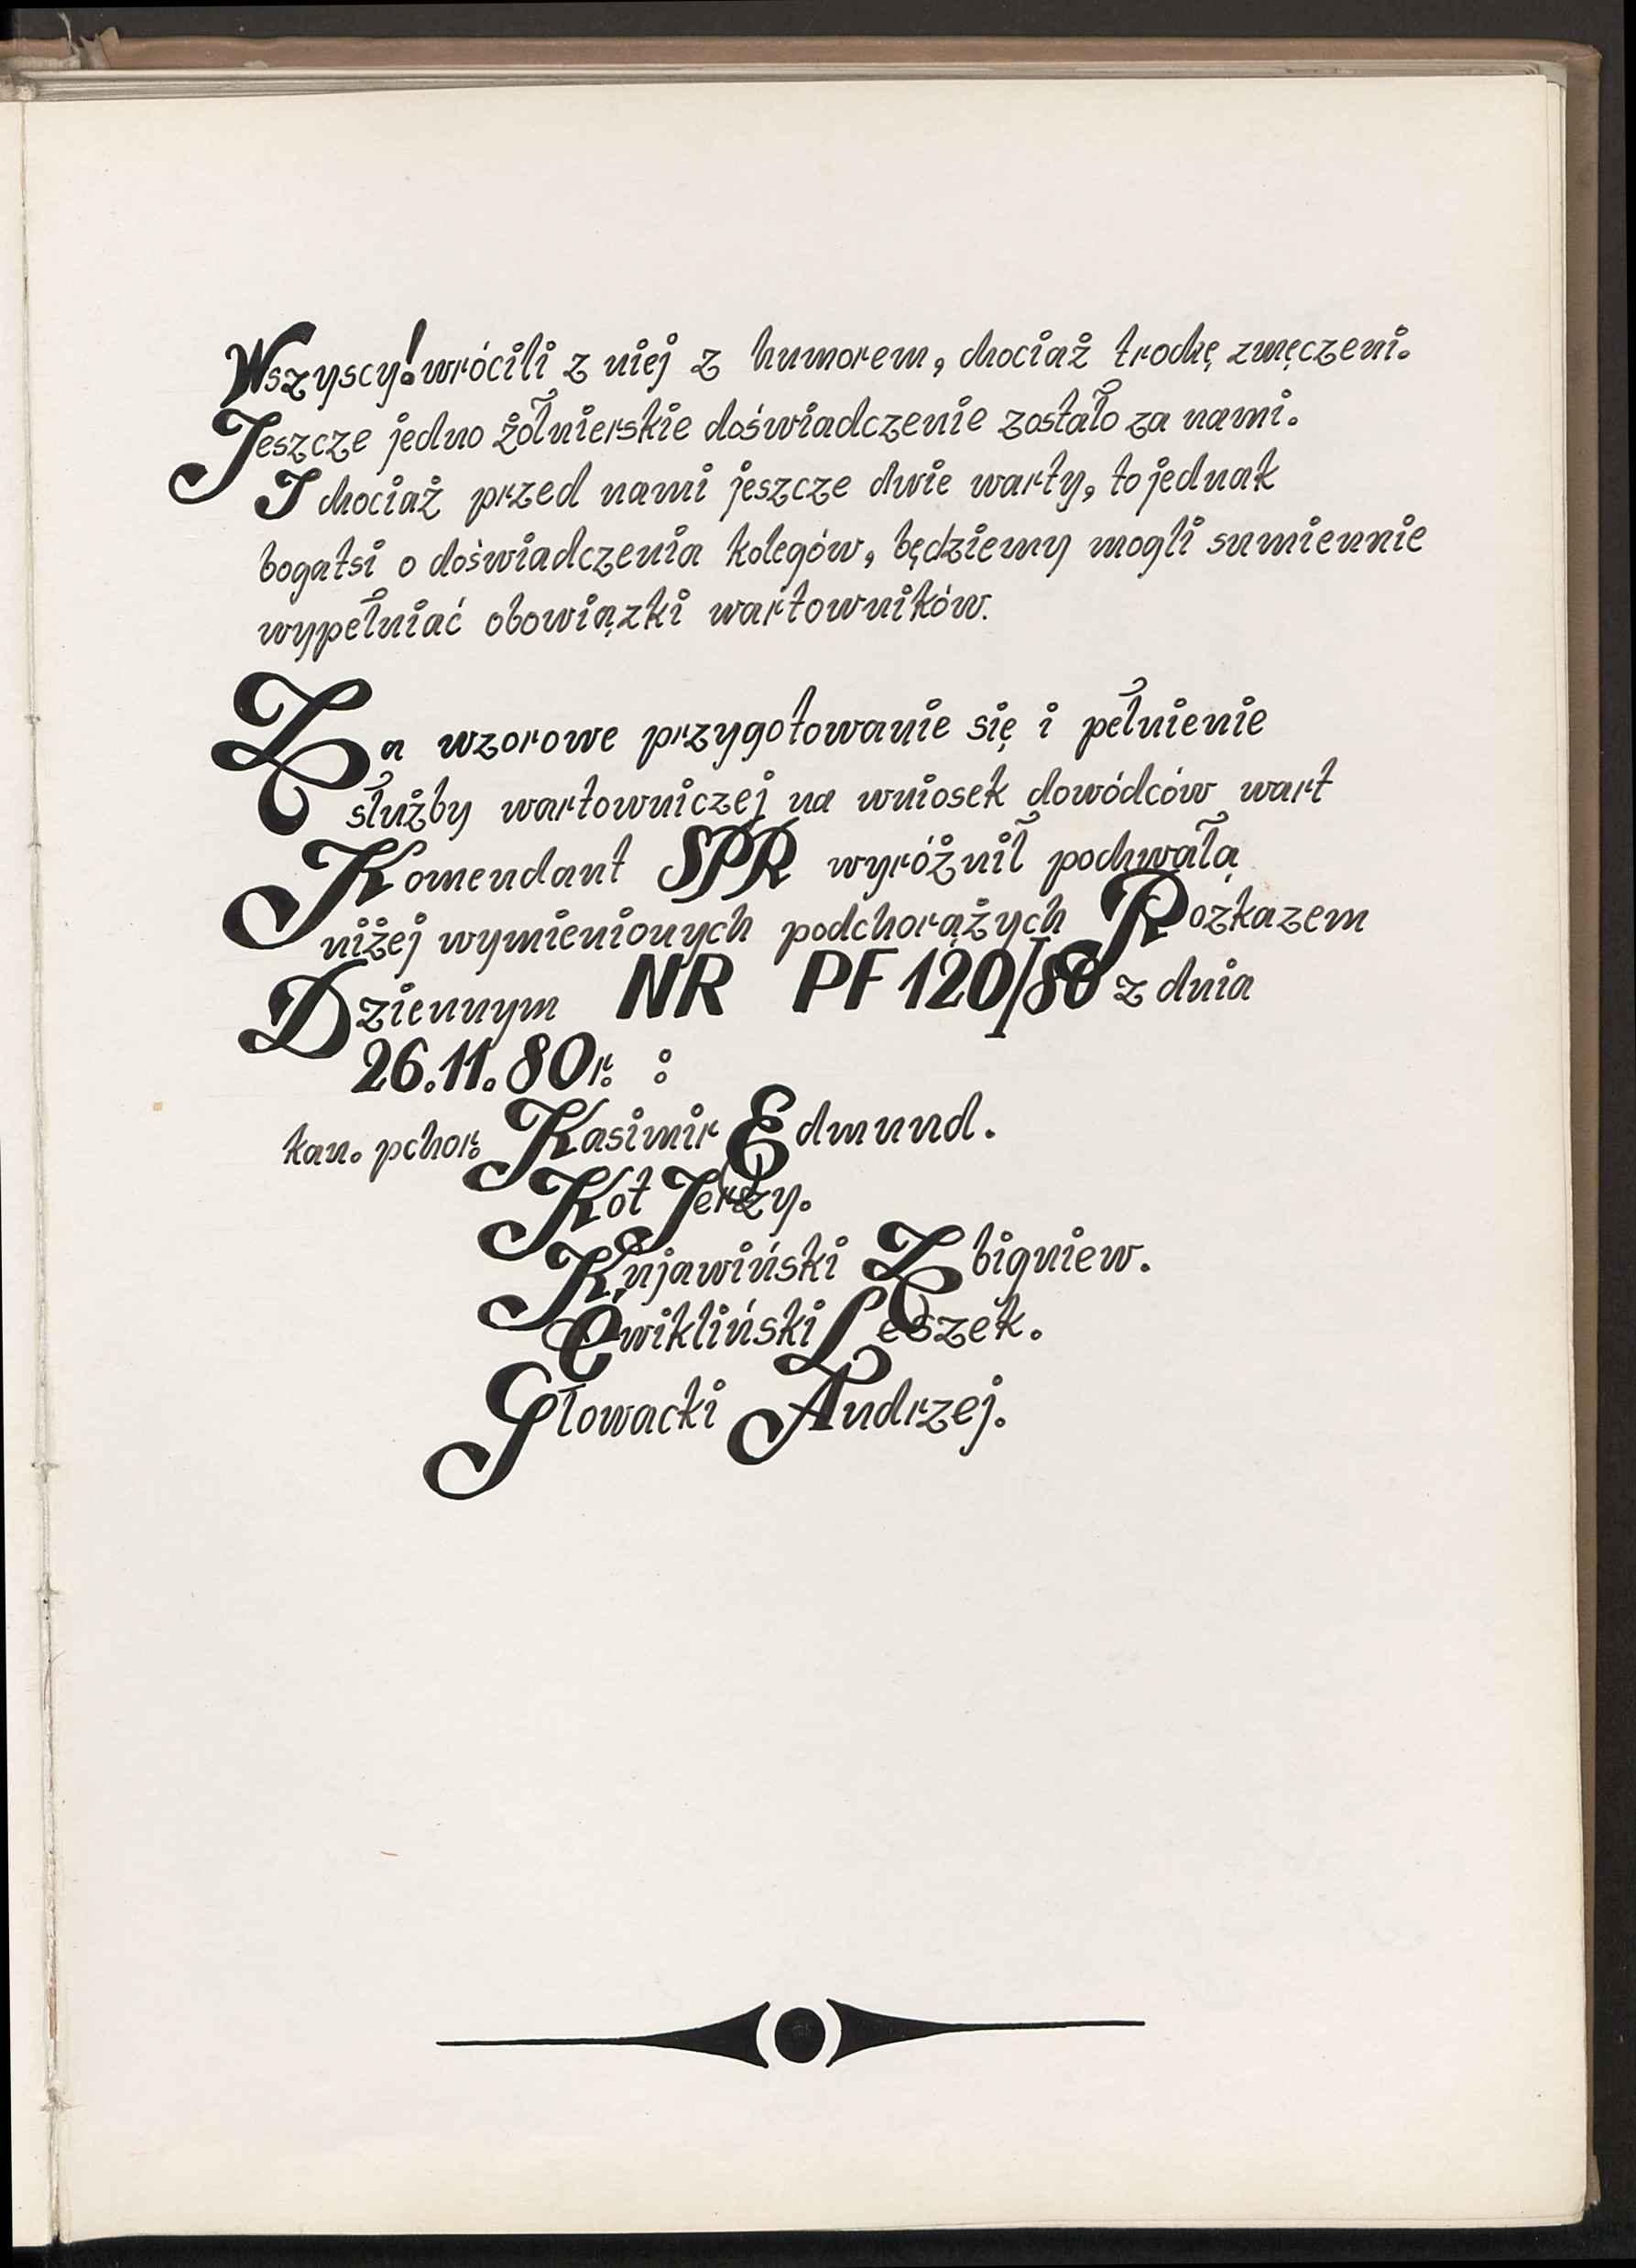 Wszyscy! wrócili z niej z humorem, chociaż trochę zmęczeni.
Jeszcze jedno żołnierskie doświadczenie zostało za nami.
I chociaż przed nami jeszcze dwie warty, to jednak
bogatsi o doświadczenia kolegów, będziemy mogli sumiennie
wypełniać obowiązki wartowników.
Za wzorowe przygotowanie się i pełnienie
służby wartowniczej na wniosek dowódców wart
Komendant SPR wyróżnił pochwałą
niżej wymienionych podchorążych Rozkazem
Dziennym NR PF 120/80 z dnia
26.11.80r. :
kan. pchor. Kasimir Edmund.
Kot Jerzy.
Kujawiński Zbigniew.
Ćwikliński Leszek.
Głowacki Andrzej.